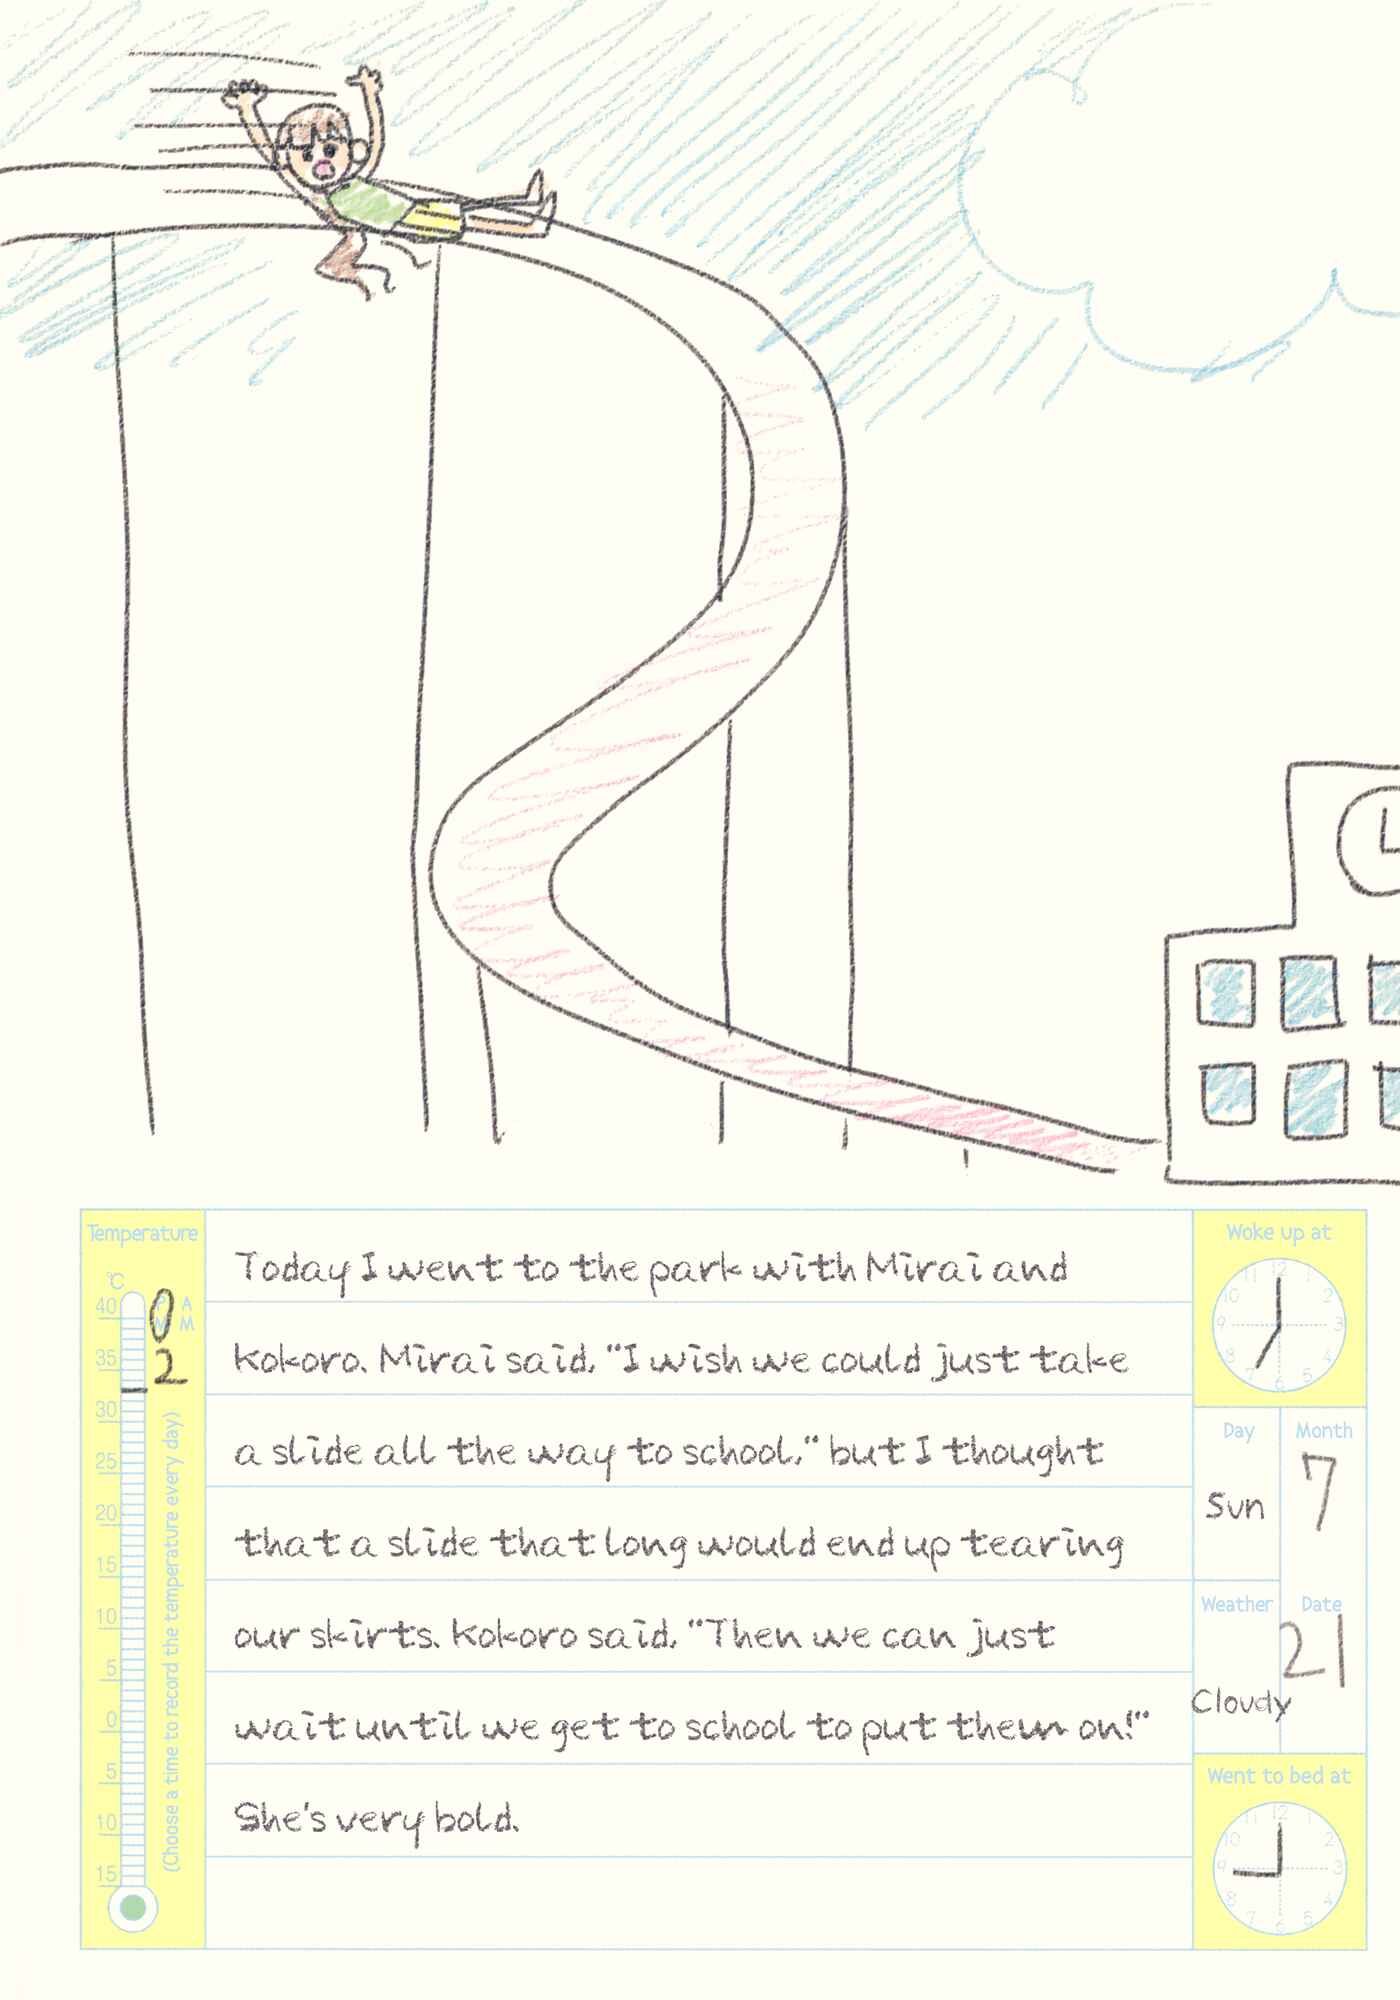 Temperature
°C
40
35
30
25
20
15
10
5
0
5
10
15
0
2
(Choose a time to record the temperature every day)
Today I went to the park with Mirai and
Kokoro. Mirai said, "I wish we could just take
a slide all the way to school," but I thought
that a slide that long would end up tearing
our skirts. Kokoro said, "Then we can just
wait until we get to school to put them on!"
She's very bold.
Woke up at
12
1
2
3
4
5
6
7
8
9
10
11
Day
Sun
Month
7
Weather
Cloudy
Date
21
Went to bed at
12
1
2
3
4
5
6
7
8
9
10
11